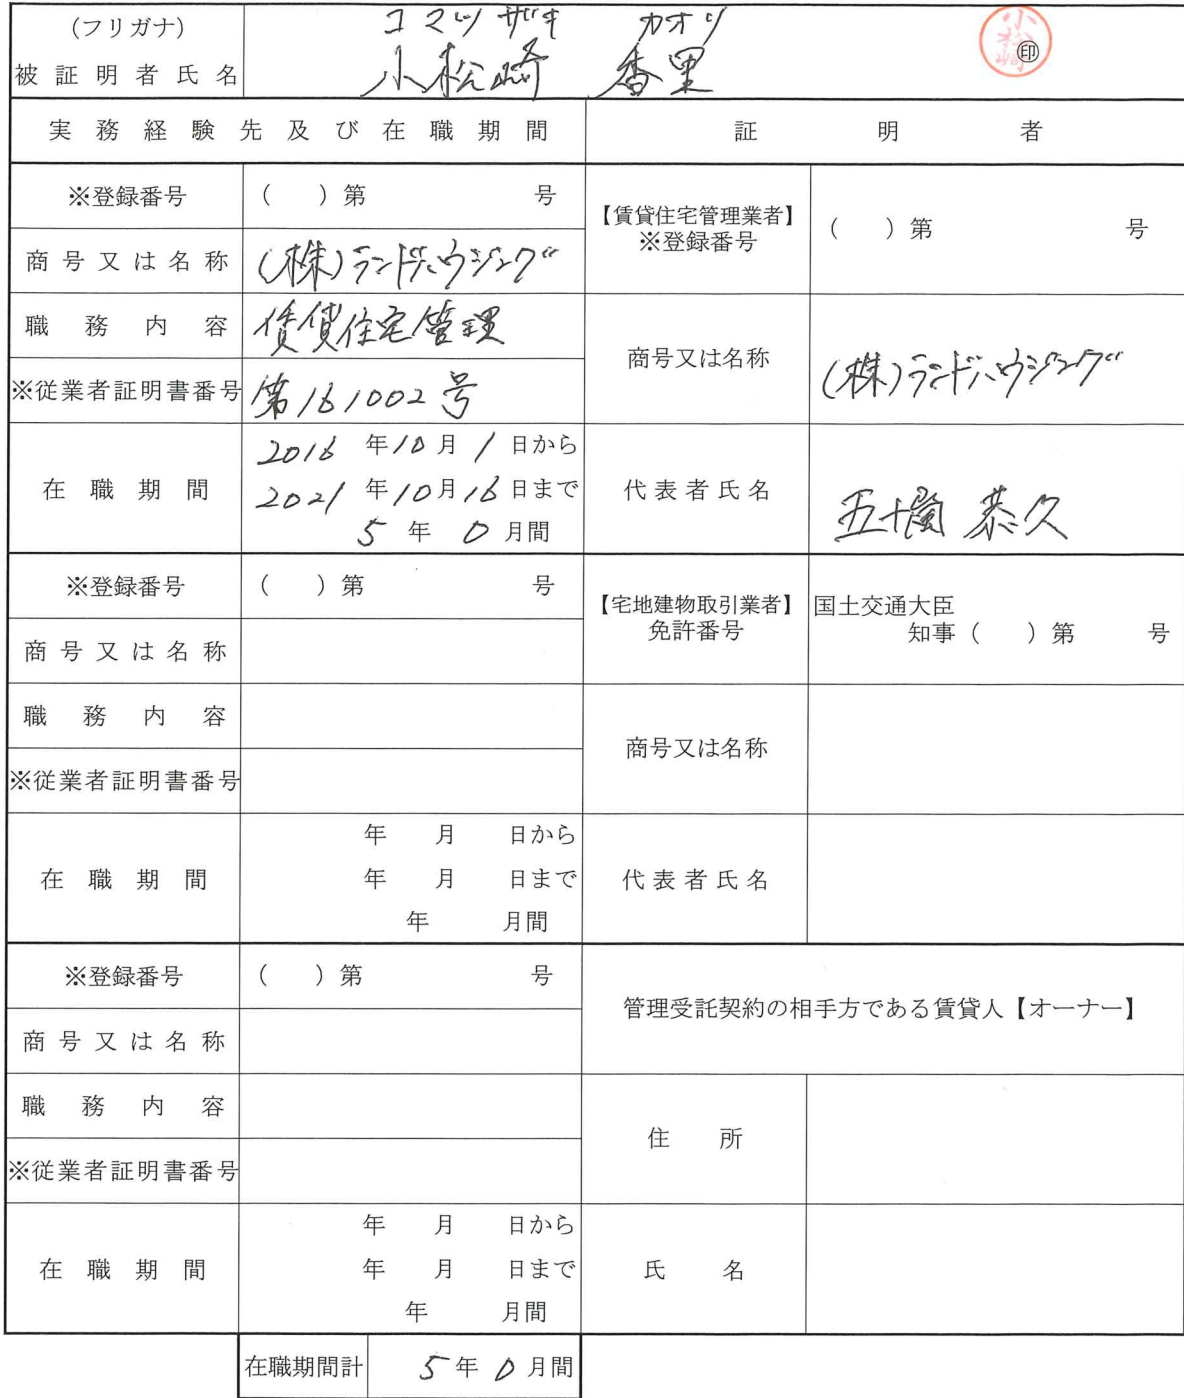 (フリガナ) コマツザキ カオリ
被証明者氏名 小松崎 香里 ㊞
小松崎
実務経験先及び在職期間 証明者
※登録番号 ( )第 号
【賃貸住宅管理業者】
※登録番号 ( )第 号
商号又は名称 (株)ランドハウジング
職務内容 賃貸住宅管理
商号又は名称 (株)ランドハウジング
※従業者証明書番号 第161002号
在職期間 2016年10月1日から
2021年10月16日まで
5年0月間
代表者氏名 五十嵐 恭久
※登録番号 ( )第 号
【宅地建物取引業者】
免許番号
国土交通大臣
知事( )第 号
商号又は名称
職務内容
商号又は名称
※従業者証明書番号
在職期間 年 月 日から
年 月 日まで
年 月間
代表者氏名
※登録番号 ( )第 号
管理受託契約の相手方である賃貸人【オーナー】
商号又は名称
職務内容
住所
※従業者証明書番号
在職期間 年 月 日から
年 月 日まで
年 月間
氏名
在職期間計 5年0月間